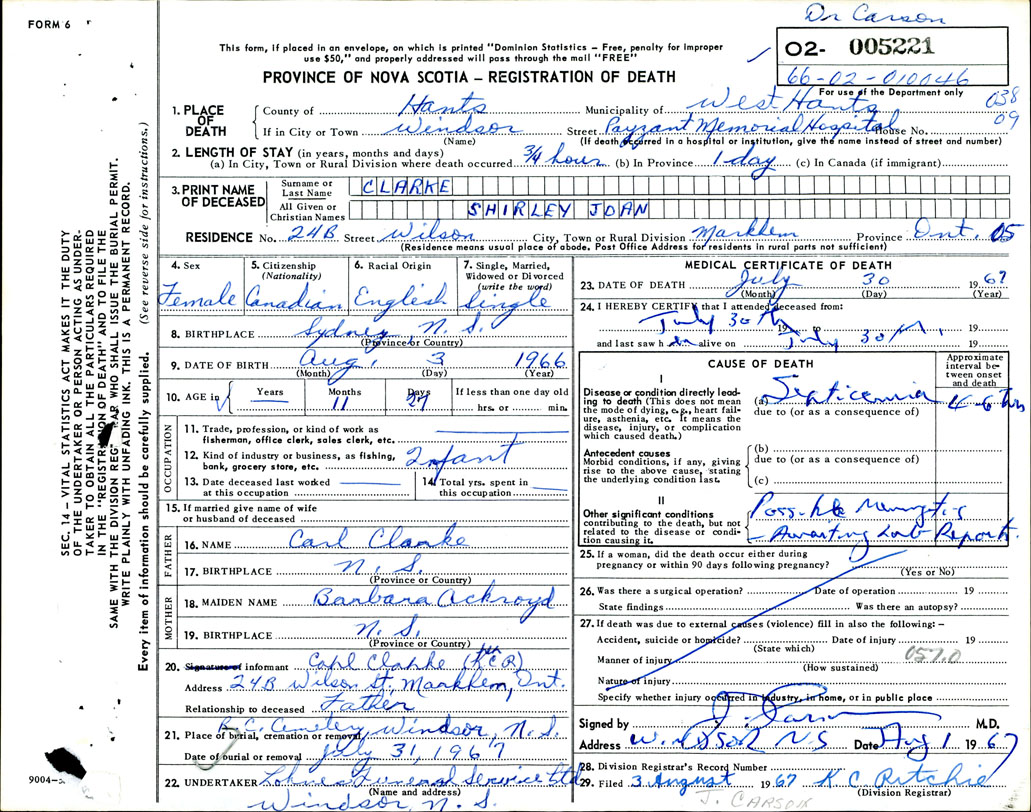 Dr Carson
FORM 6
This form, if placed in an envelope, on which is printed "Dominion Statistics – Free, penalty for improper
use $50," and properly addressed will pass through the mail "FREE"
O2- 005221
66-02-010046
For use of the Department only
PROVINCE OF NOVA SCOTIA – REGISTRATION OF DEATH
038
09
1. PLACE OF DEATH
County of Hants Municipality of West Hants
If in City or Town Windsor Street Payzant Memorial Hospital House No.
(Name) (If death occurred in a hospital or institution, give the name instead of street and number)
2. LENGTH OF STAY (in years, months and days)
(a) In City, Town or Rural Division where death occurred 3/4 hour (b) In Province 1 day (c) In Canada (if immigrant)
3. PRINT NAME OF DECEASED
Surname or Last Name CLARKE
All Given or Christian Names SHIRLEY JOAN
RESIDENCE No. 24B Street Wilson City, Town or Rural Division Markhem Province Ont. 05
(Residence means usual place of abode. Post Office Address for residents in rural parts not sufficient)
4. Sex Female
5. Citizenship (Nationality) Canadian
6. Racial Origin English
7. Single, Married, Widowed or Divorced (write the word) Single
8. BIRTHPLACE Sydney N. S.
(Province or Country)
9. DATE OF BIRTH Aug. 3 1966
(Month) (Day) (Year)
10. AGE in Years Months 11 Days 27 If less than one day old hrs. or min.
OCCUPATION
11. Trade, profession, or kind of work as fisherman, office clerk, sales clerk, etc.
12. Kind of industry or business, as fishing, bank, grocery store, etc. Infant
13. Date deceased last worked at this occupation
14. Total yrs. spent in this occupation
15. If married give name of wife or husband of deceased
FATHER
16. NAME Carl Clarke
17. BIRTHPLACE N. S.
(Province or Country)
MOTHER
18. MAIDEN NAME Barbara Ackroyd
19. BIRTHPLACE N. S.
(Province or Country)
20. Signature of informant Carl Clarke (per KCR)
Address 24B Wilson St, Markhem, Ont.
Relationship to deceased Father
21. Place of burial, cremation or removal R.C. Cemetery, Windsor, N. S.
Date of burial or removal July 31, 1967
22. UNDERTAKER Funeral Service Ltd
(Name and address)
Windsor, N. S.
MEDICAL CERTIFICATE OF DEATH
23. DATE OF DEATH July 30 1967
(Month) (Day) (Year)
24. I HEREBY CERTIFY that I attended deceased from:
July 30th 19 to July 30th, 19
and last saw h alive on 19
CAUSE OF DEATH
Approximate interval between onset and death
I
Disease or condition directly leading to death (This does not mean the mode of dying, e.g., heart failure, asthenia, etc. It means the disease, injury, or complication which caused death.)
(a) Septicemia 4-6 hrs
due to (or as a consequence of)
Antecedent causes
Morbid conditions, if any, giving rise to the above cause, stating the underlying condition last.
(b)
due to (or as a consequence of)
(c)
II
Other significant conditions
contributing to the death, but not related to the disease or condition causing it.
Possible Meningitis
– Awaiting Lab Reports.
25. If a woman, did the death occur either during pregnancy or within 90 days following pregnancy?
(Yes or No)
26. Was there a surgical operation? Date of operation 19
State findings Was there an autopsy?
27. If death was due to external causes (violence) fill in also the following: –
Accident, suicide or homicide? Date of injury 19
(State which)
Manner of injury 057.0
(How sustained)
Nature of injury
Specify whether injury occurred in industry, in home, or in public place
Signed by J. Carson M.D.
Address WINDSOR N.S Date Aug 1 1967
28. Division Registrar's Record Number
29. Filed 3 August 1967 K C Ritchie
(Division Registrar)
J. CARSON
SEC. 14 – VITAL STATISTICS ACT MAKES IT THE DUTY
OF THE UNDERTAKER OR PERSON ACTING AS UNDER-
TAKER TO OBTAIN ALL THE PARTICULARS REQUIRED
IN THE "REGISTRATION OF DEATH" AND TO FILE THE
SAME WITH THE DIVISION REGISTRAR WHO SHALL ISSUE THE BURIAL PERMIT.
WRITE PLAINLY WITH UNFADING INK. THIS IS A PERMANENT RECORD.
Every item of information should be carefully supplied. (See reverse side for instructions.)
9004-